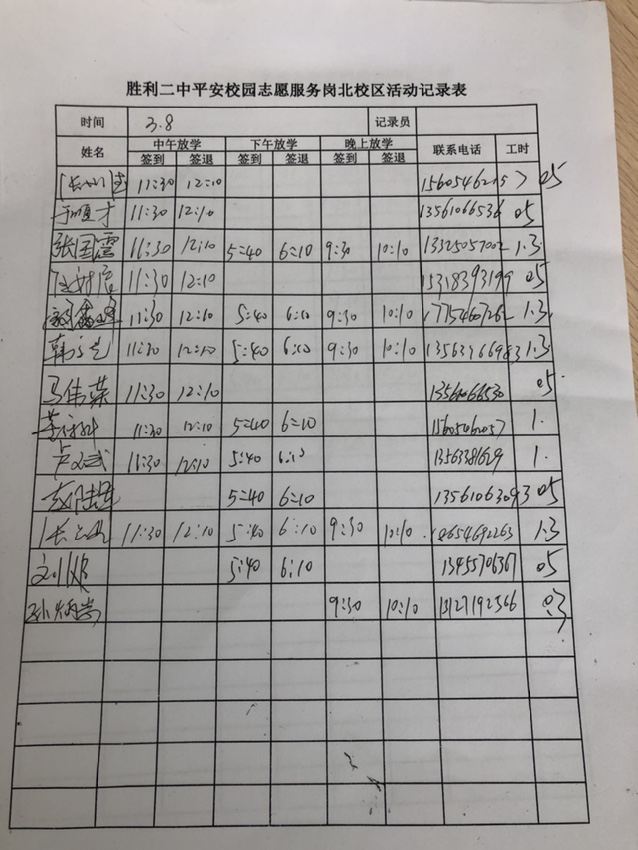 胜利二中平安校园志愿服务岗北校区活动记录表
时间 3.8 记录员
姓名 中午放学 下午放学 晚上放学 联系电话 工时
签到 签退 签到 签退 签到 签退
11:30 12:10 05
于顺才 11:30 12:10 13561066536 05
张国霞 11:30 12:10 5:40 6:10 9:30 10:10 13325057002 1.3
11:30 12:10 15318393199 05
11:30 12:10 5:40 6:10 9:30 10:10 1.3
11:30 12:10 5:40 6:10 9:30 10:10 1.3
马伟荣 11:30 12:10 13561066530 05
11:30 12:10 5:40 6:10 15605462057 1.
11:30 12:10 5:40 6:10 13563381629 1.
5:40 6:10 13561063093 05
11:30 12:10 5:40 6:10 9:30 10:10 1.3
5:40 6:10 13455706367 05
孙炳嵩 9:30 10:10 13127192366 0.3